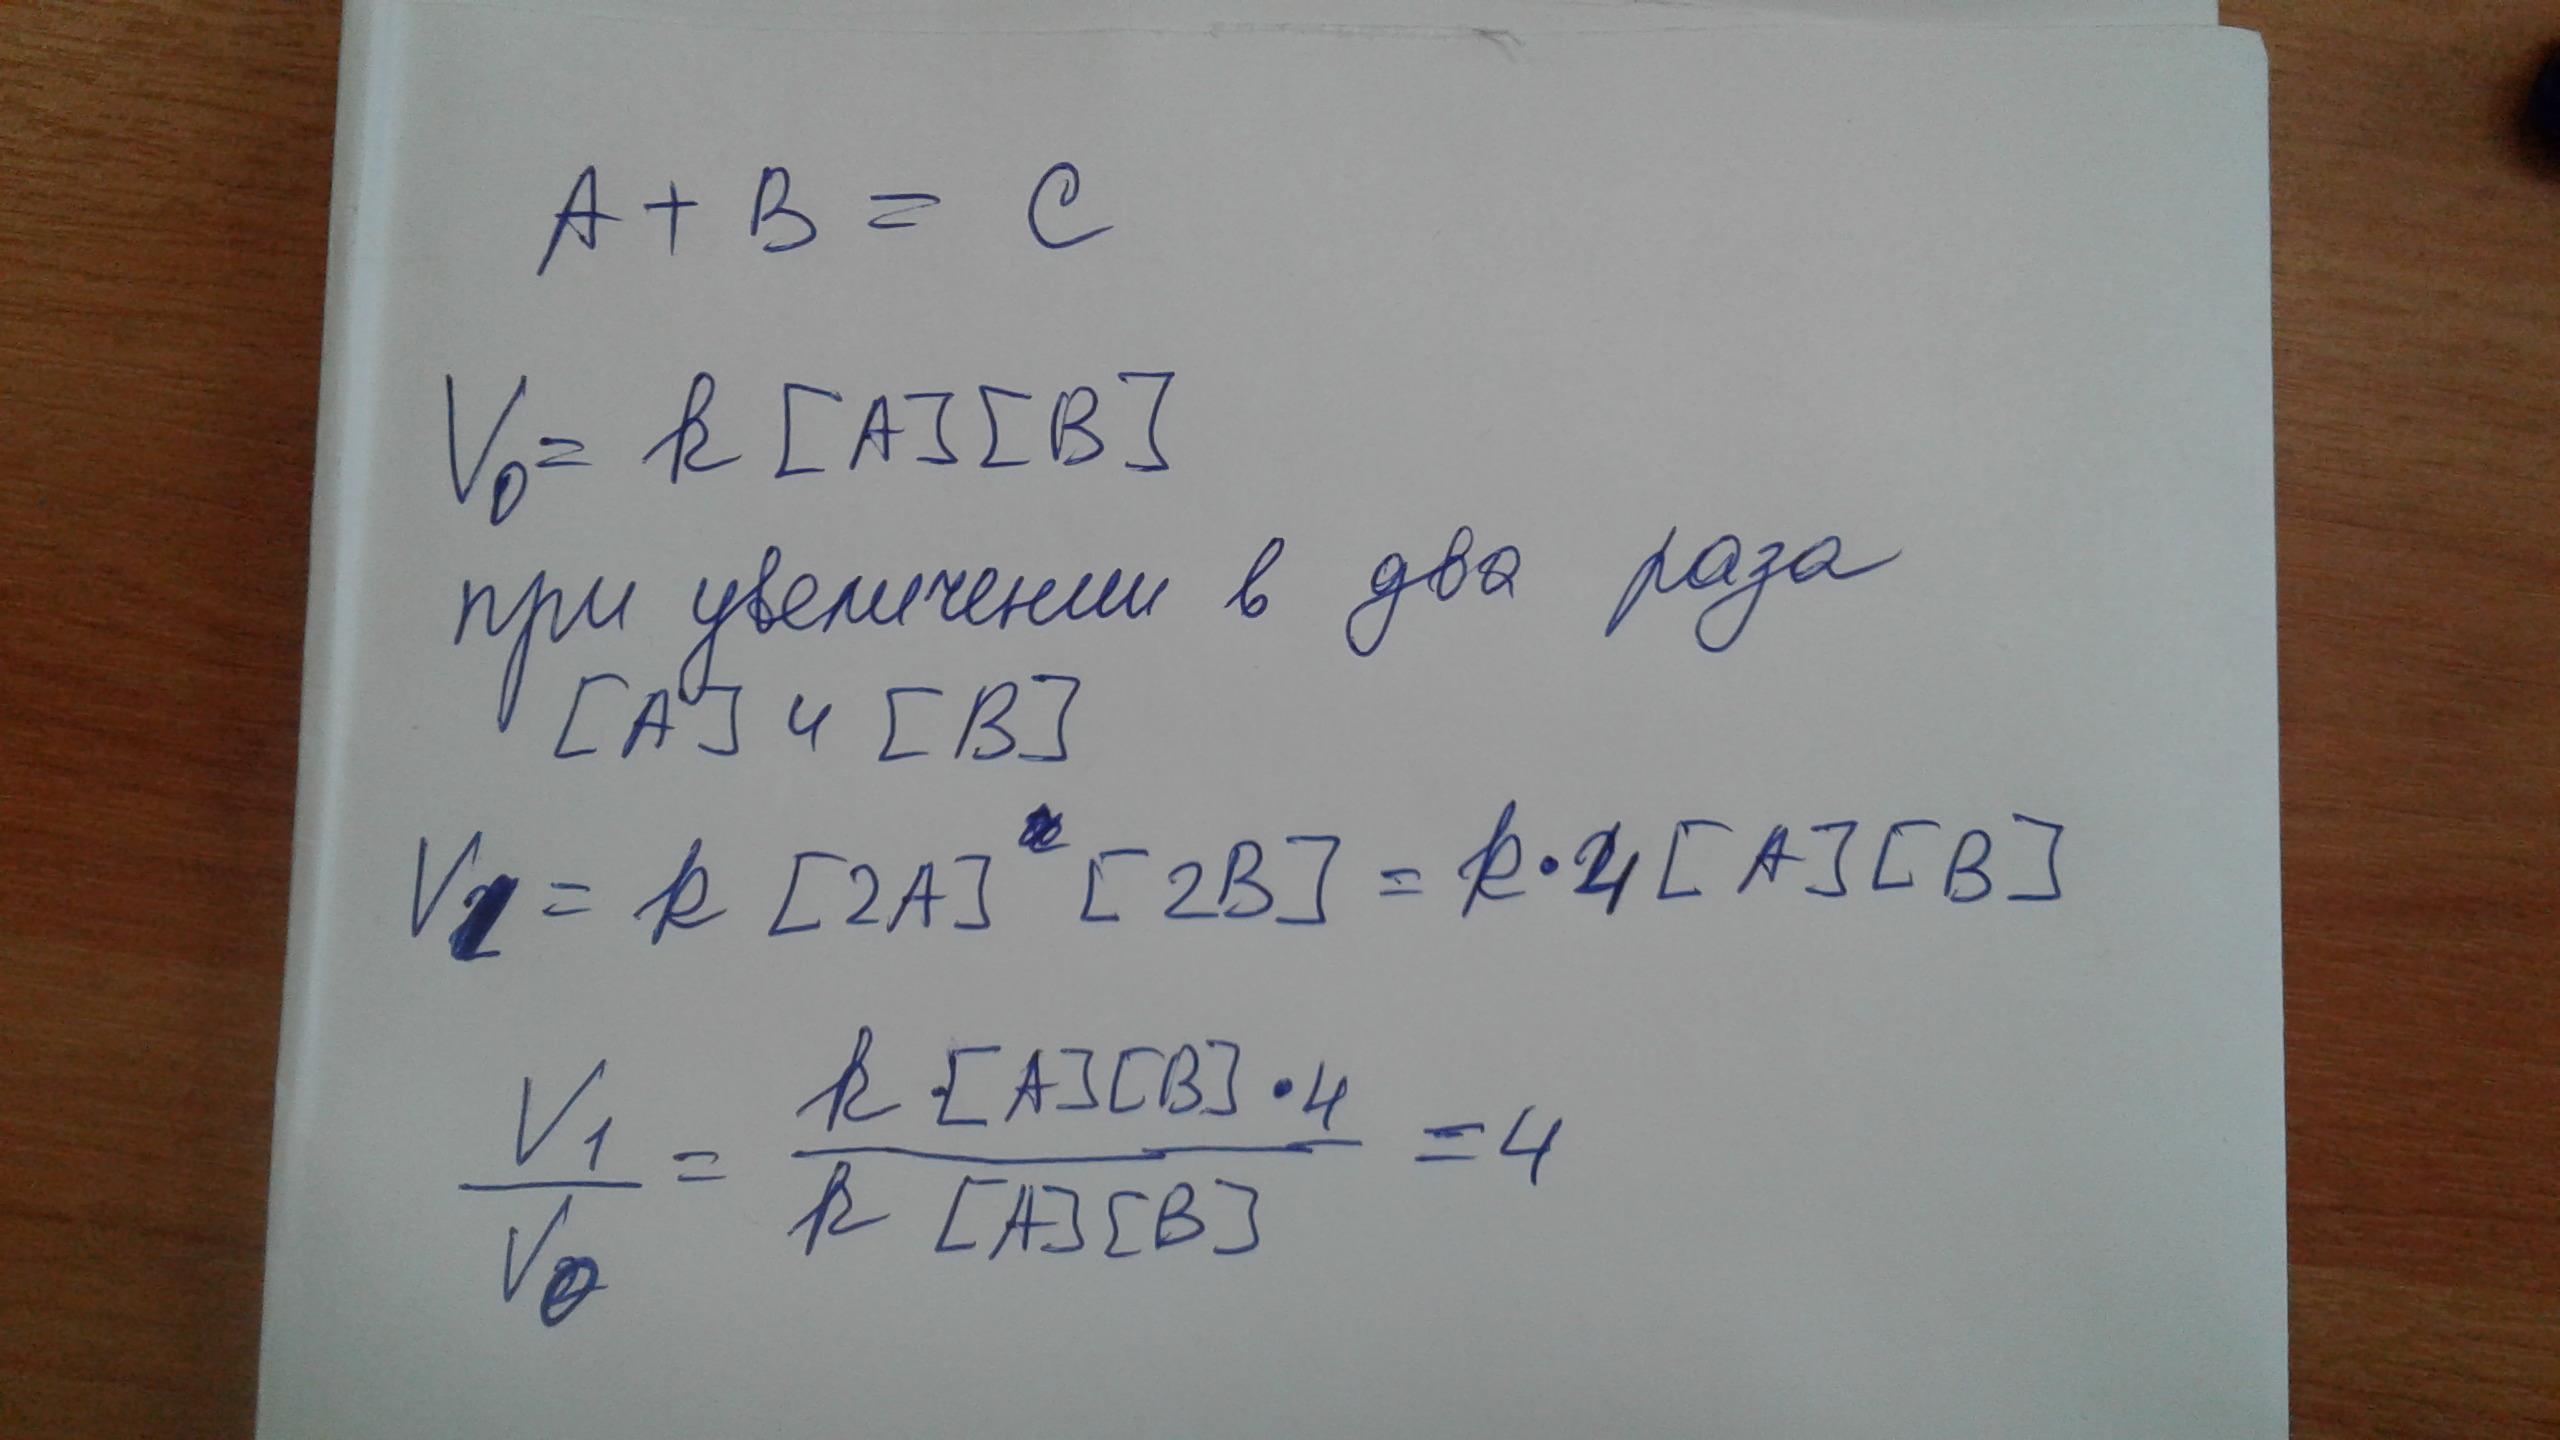 A + B = C
V₀ = k [A][B]
при увеличении в два раза
[A] и [B]
V₁ = k [2A] [2B] = k · 4 [A][B]
V₁/V₀ = k · [A][B] · 4 / k [A][B] = 4